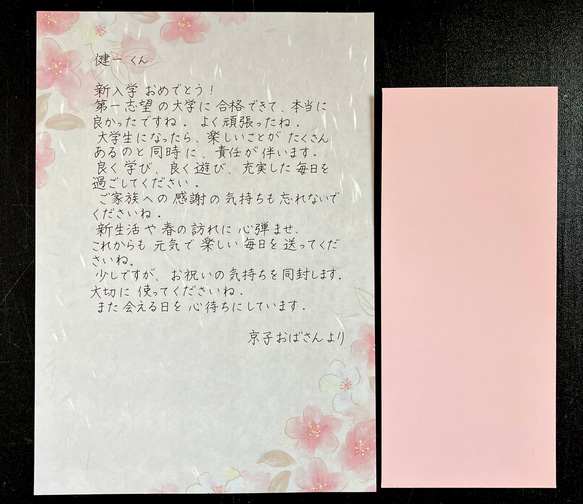 健一くん
新入学おめでとう!
第一志望の大学に合格できて、本当に
良かったですね。よく頑張ったね。
大学生になったら、楽しいことがたくさん
あるのと同時に、責任が伴います。
良く学び、良く遊び、充実した毎日を
過ごしてください。
ご家族への感謝の気持ちも忘れないで
くださいね。
新生活や春の訪れに心弾ませ、
これからも元気で楽しい毎日を送ってくだ
さいね。
少しですが、お祝いの気持ちを同封します。
大切に使ってくださいね。
また会える日を心待ちにしています。
京子おばさんより